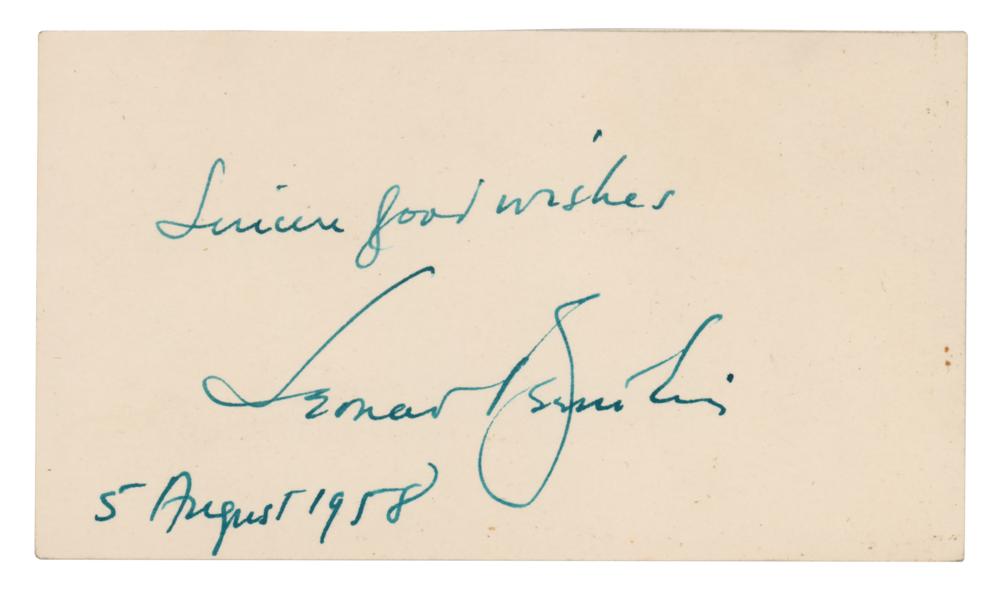 Sincere good wishes
Leonard Bernstein
5 August 1958